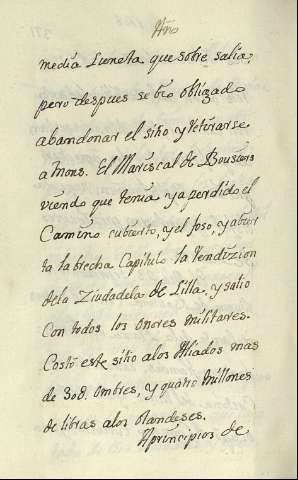 Año
media Luneta que sobre salia,
pero despues se bio obligado
abandonar el sitio y Retirarse
a Mons. El Mariscal de Boufiers
viendo que tenia ya perdido el
Camino cubierto, y el foso, y abier
ta la brecha Capitulo la Rendizion
dela Ziudadela de Lilla, y salio
Con todos los onores militares.
Costo este sitio alos Aliados mas
de 30d. ombres, y quatro millones
de libras alos olandeses.
Aprincipios de